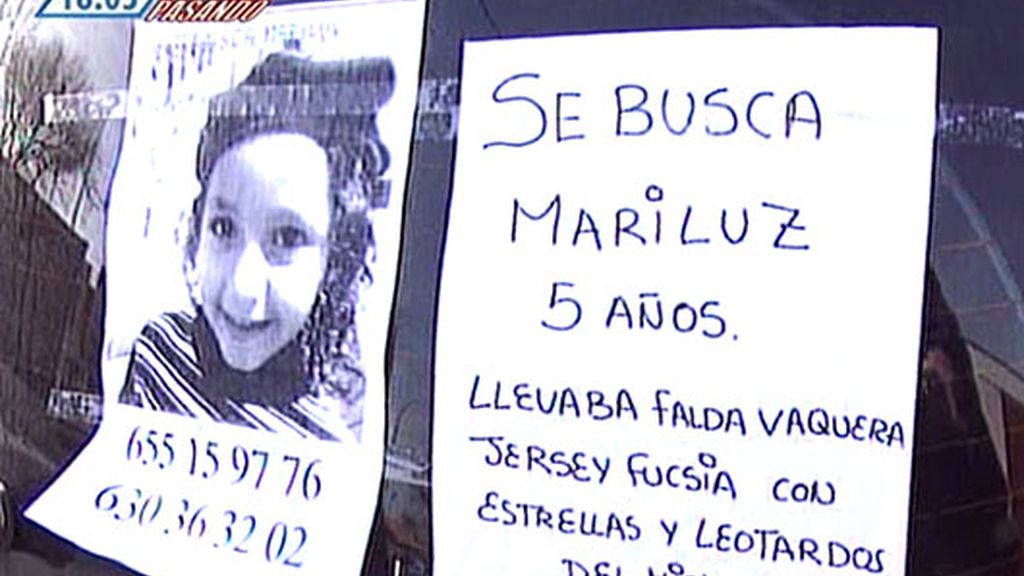 18:05
PASANDO
655 15 97 76
630 36 32 02
SE BUSCA
MARILUZ
5 AÑOS.
LLEVABA FALDA VAQUERA
JERSEY FUCSIA CON
ESTRELLAS Y LEOTARDOS
DEL